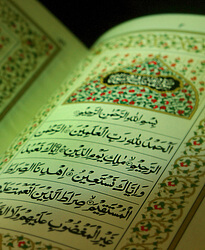 بسم الله الرحمن الرحيم
الحمد لله رب العلمين الرحمن
الرحيم ملك يوم الدين إياك نعبد
وإياك نستعين اهدنا الصراط
المستقيم صراط الذين أنعمت عليهم
غير المغضوب عليهم ولا